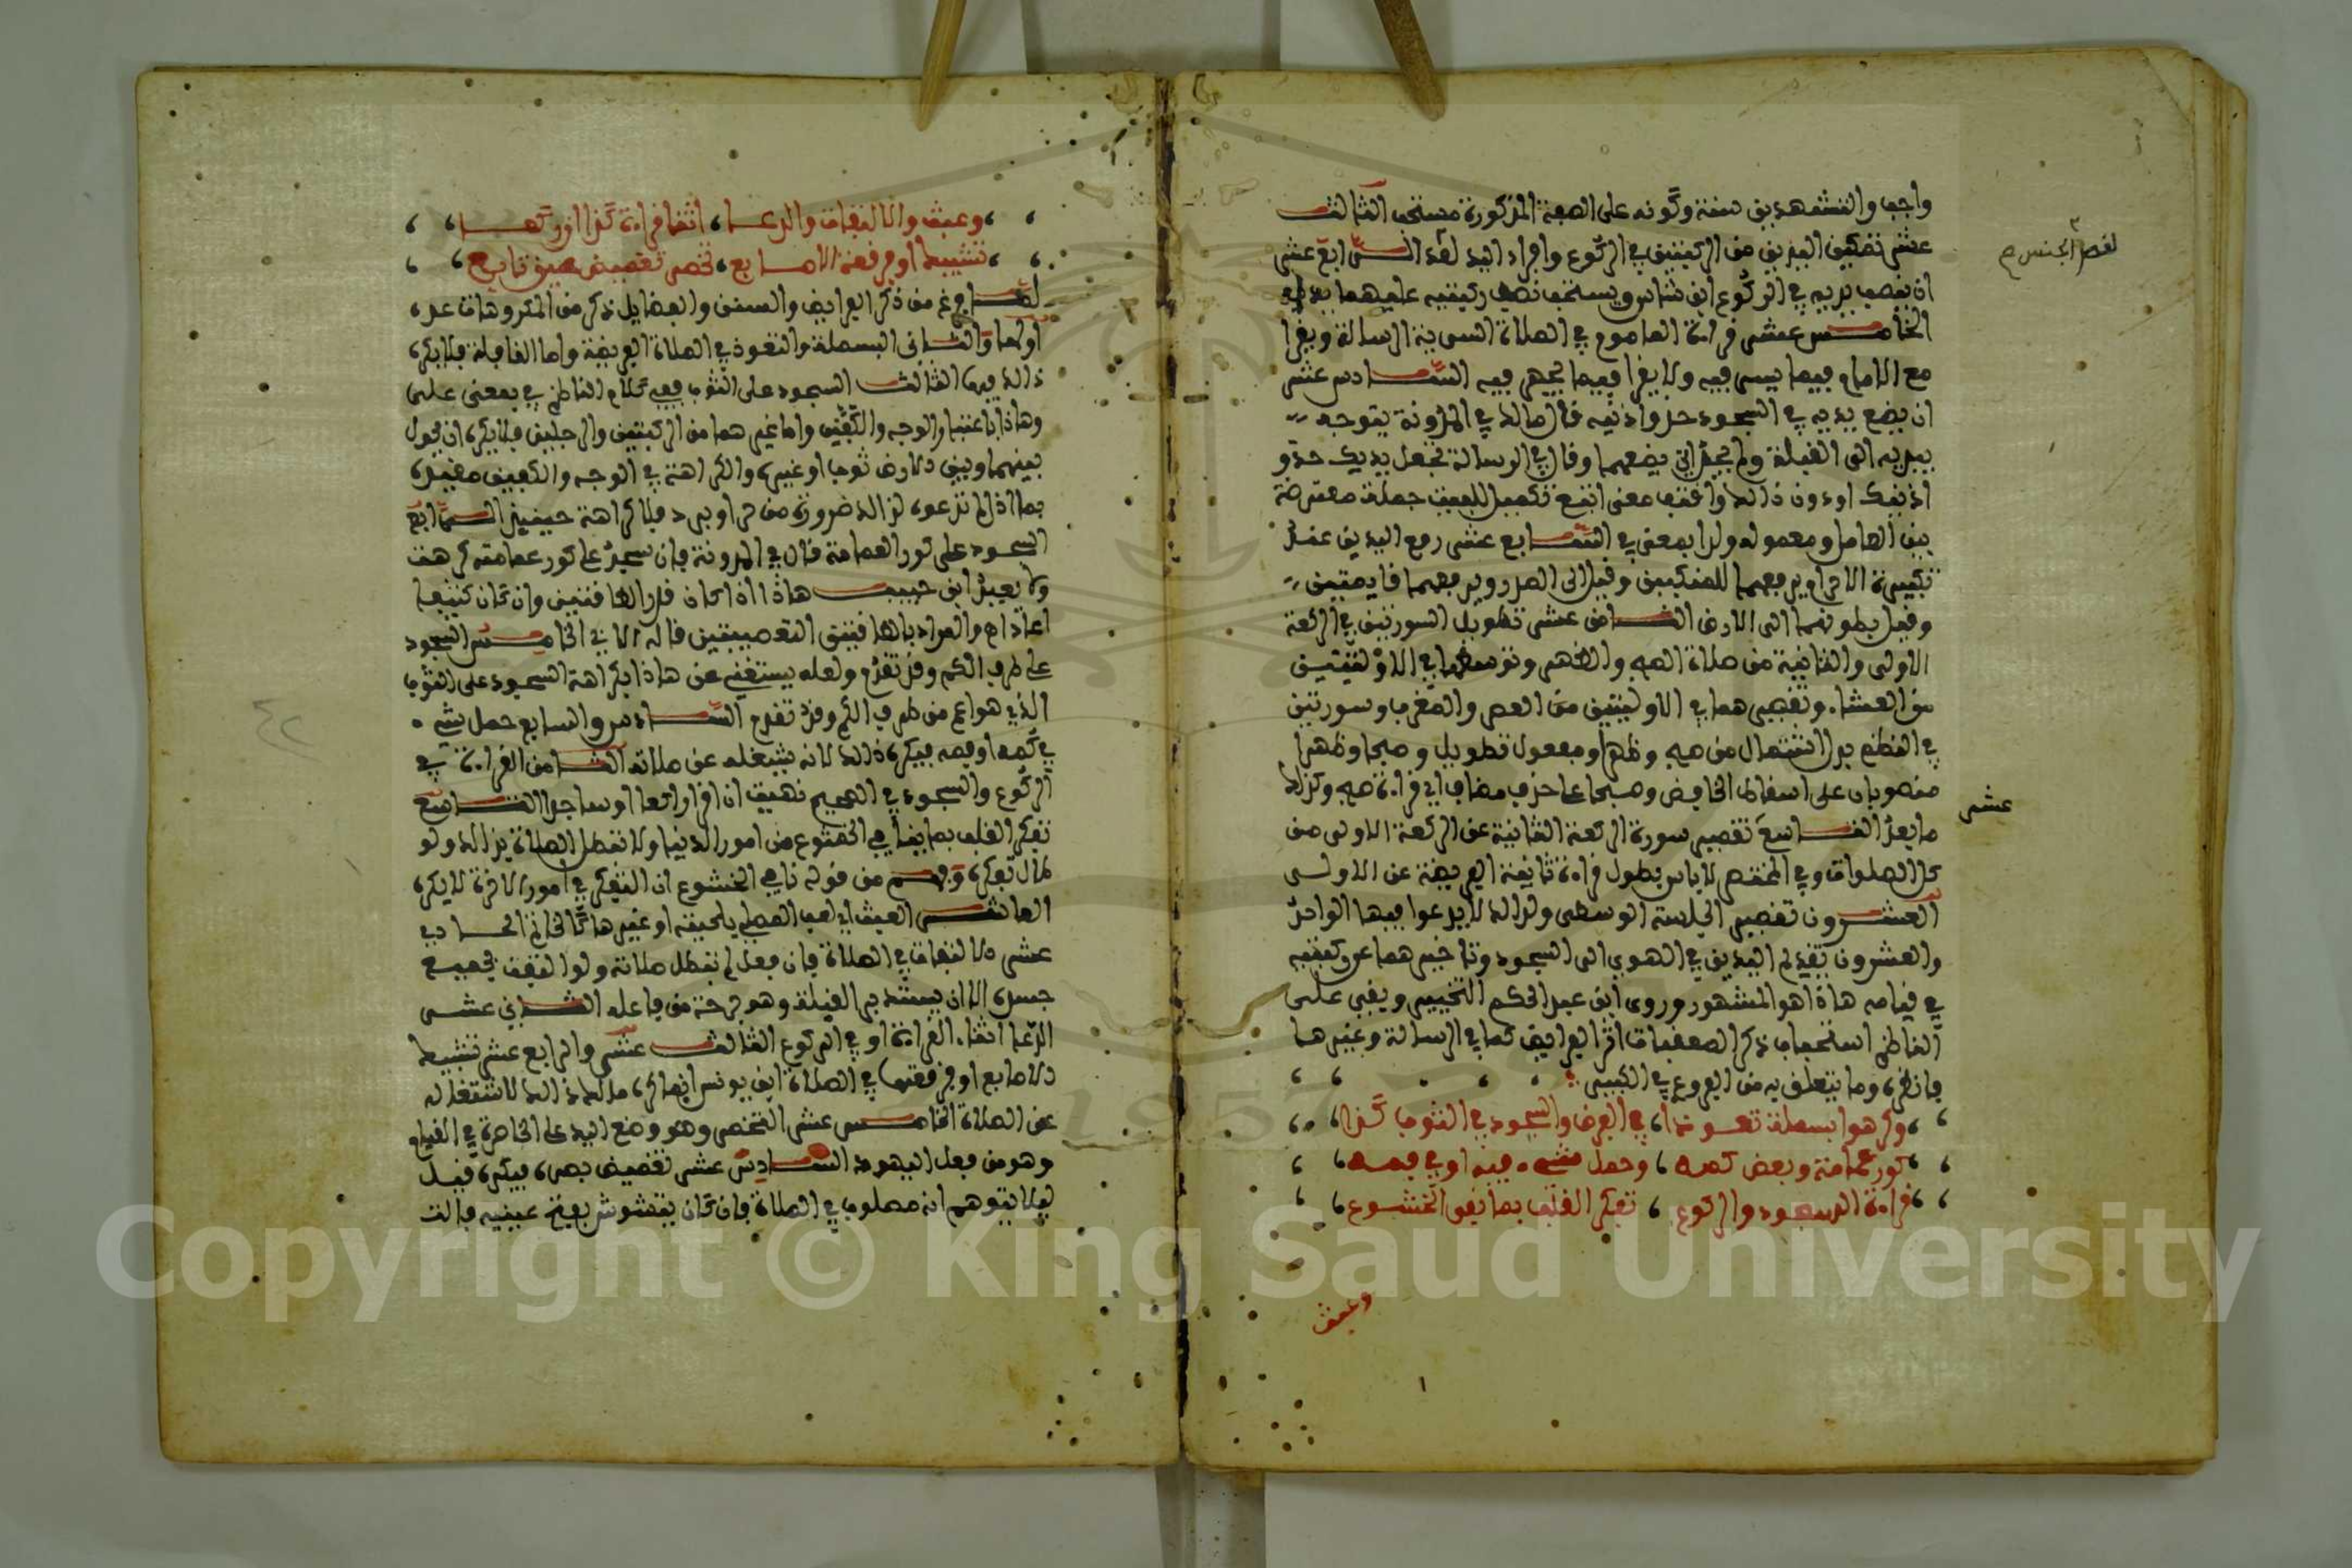 واجب والتشهدين سنة وكونه على الصفة المذكورة مستحب الثالث
عشر تمكين اليدين من الركبتين في الركوع وافراد اليد لقصد الجنس الرابع عشر
ان ينصب يديه في الركوع ابن شاس ويستحب نصب ركبتيه عليهما يداه
الخامس عشر قراءة الماموم في الصلاة السرية الرسالة ويقرا
مع الامام فيما يسر فيه ولا يقرا فيما يجهر فيه السادس عشر
ان يضع يديه في السجود حذو اذنيه قال مالك في المدونة يتوجه
بيديه الى القبلة ولم يحد اين يضعهما وقال في الرسالة تجعل يديك حذو
اذنيك او دون ذالك واقتف معنى اتبع تكميل للبيت جملة معترضة
بين العامل ومعموله ولدا بمعنى في السابع عشر رفع اليدين عند
تكبيرة الاحرام يرفعهما للمنكبين وقيل الى الصدر ويرفعهما قايمتين
وقيل بطونهما الى الارض الثامن عشر تطويل السورتين في الركعة
الاولى والثانية من صلاة الصبح والظهر وتوسطهما في الاوليتين
من العشاء وتقصيرهما في الاوليتين من العصر والمغرب وسورتين
في النظم بدل اشتمال من صبح وظهرا ومفعول تطويل وصبحا وظهرا
منصوبان على اسقاط الخافض وصبحا على حذف مضاف اي قراءة صبح وكذالك
ما بعد التاسع تقصير سورة الركعة الثانية عن الركعة الاولى من
عشر
كل الصلوات وفي المختصر لا باس بطول قراءة ثانية الفريضة عن الاولى
العشرون تقصير الجلسة الوسطى ولذالك لا يدعوا فيها الواحد
والعشرون تقديم اليدين في الهوي الى السجود وتاخيرهما عن ركبتيه
في قيامه هاذا هو المشهور وروى ابن عبد الحكم التخيير وبقي على
الناظم استحباب ذكر المعقبات اثر الفرايض كما في الرسالة وغيرها
فانظره وما يتعلق به من الفروع في الكبير
وكرهوا بسملة تعوذا، في الفرض والسجود في الثوب كذا
كور عمامة وبعض كمه، وحمل شيء فيه او في فمه
قراءة لدى السجود والركوع، تفكر القلب بما نافى الخشوع
وعبث
وعبث والالتفات والدعا، اثنا قراءة كذا ان ركعا
تشبيك او فرقعة الاصابع، تخصر تغميض عين تابع
لما فرغ من ذكر الفرايض والسنن والفضايل ذكر من المكروهات عدة
اولها والثاني البسملة والتعوذ في الصلاة الفريضة واما النافلة فلا يكره
ذالك فيها الثالث السجود على الثوب ففي كلام الناظم في بمعنى على
وهاذا باعتبار الوجه والكفين واما غيرهما من الركبتين والرجلين فلا يكره ان يحول
بينهما وبين الارض ثوب او غيره والكراهة في الوجه والكفين مقيدة
بما اذا لم تدعوا لذالك ضرورة من حر او برد فلا كراهة حينيذ الرابع
السجود على كور العمامة قال في المدونة فان سجد على كور عمامته كرهت
ولا يعيد ابن حبيب هاذا اذا كان قدر الطاقتين وان كان كثيفا
اعاد ام والمراد بالطاقتين التعصيبتين قاله الابي الخامس السجود
على طرف الكم وقد تقدم ولعله يستغني عن هاذا بكراهة السجود على الثوب
الذي هو اعم من طرف الكم وقد تقدم السادس والسابع حمل شيء
في كمه او فمه فيكره ذالك لانه يشغله عن صلاته الثامن القراءة في
الركوع والسجود في الصحيح نهيت ان اقرا راكعا او ساجدا التاسع
تفكر القلب بما ينافي الخشوع من امور الدنيا ولا تبطل الصلاة بذالك ولو
طال تفكره وفهم من قوله نافى الخشوع ان التفكر في امور الاخرة لا يكره
العاشر العبث اي لعب المصلي بلحيته او غيرها كالخاتم الحادي
عشر الالتفات في الصلاة فان فعل لم تبطل صلاته ولو التفت بجميع
جسده الا ان يستدبر القبلة وهو جرحة من فاعله الثاني عشر
الدعا اثناء القراءة او في الركوع الثالث عشر والرابع عشر تشبيك
الاصابع او فرقعتها في الصلاة ابن يونس انما كره مالك ذالك لاشتغاله
عن الصلاة الخامس عشر التخصر وهو وضع اليد على الخاصرة في القيام
وهو من فعل اليهود السادس عشر تغميض بصره فيكره قيل
ليلا يتوهم انه مطلوب في الصلاة فان كان يتشوش بفتح عينيه فالت
Copyright © King Saud University
1957